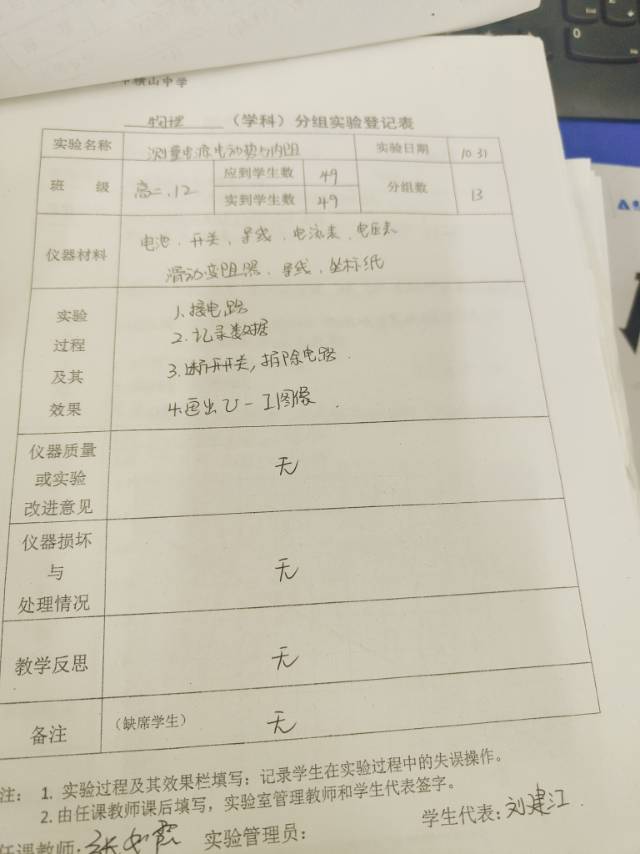 横山中学
物理 （学科）分组实验登记表
实验名称 测量电源电动势与内阻 实验日期 10.31
班 级 高二.12 应到学生数 49 分组数 13
实到学生数 49
仪器材料 电池.开关,导线.电流表.电压表
滑动变阻器.导线.坐标纸
实验 1.接电路
过程 2.记录数据
及其 3.断开开关,拆除电路.
效果 4.画出U-I图像.
仪器质量
或实验 无
改进意见
仪器损坏
与 无
处理情况
教学反思 无
备注 （缺席学生） 无
注： 1. 实验过程及其效果栏填写：记录学生在实验过程中的失误操作。
2.由任课教师课后填写，实验室管理教师和学生代表签字。
任课教师: 实验管理员： 学生代表: 刘建江